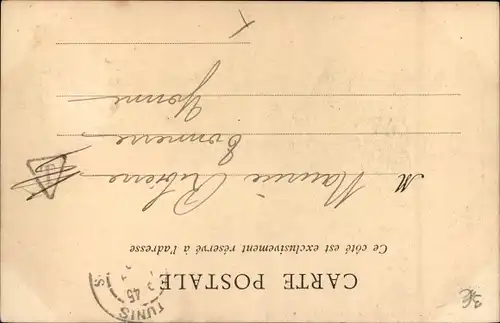 CARTE POSTALE
Ce côté est exclusivement réservé à l'adresse
M Maurice
Tonnerre
Yonne
TUNIS
45